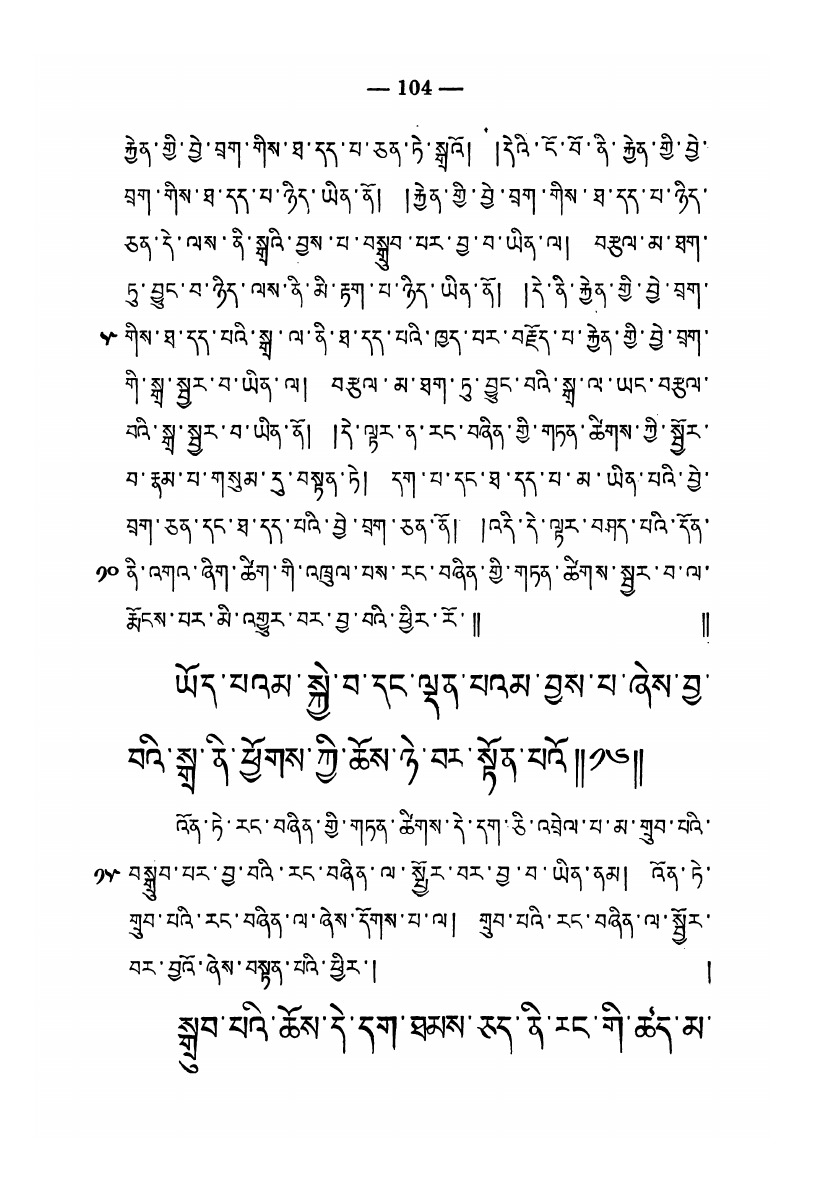 — 104 —
རྐྱེན་གྱི་བྱེ་བྲག་གིས་ཐ་དད་པ་ཅན་ཏེ་སྒྲའོ། །དེའི་ངོ་བོ་ནི་རྐྱེན་གྱི་བྱེ་
བྲག་གིས་ཐ་དད་པ་ཉིད་ཡིན་ནོ། །རྐྱེན་གྱི་བྱེ་བྲག་གིས་ཐ་དད་པ་ཉིད་
ཅན་དེ་ལས་ནི་སྒྲའི་བྱས་པ་བསྒྲུབ་པར་བྱ་བ་ཡིན་ལ། བརྩལ་མ་ཐག་
ཏུ་བྱུང་བ་ཉིད་ལས་ནི་མི་རྟག་པ་ཉིད་ཡིན་ནོ། །དེ་ནི་རྐྱེན་གྱི་བྱེ་བྲག་
༥ གིས་ཐ་དད་པའི་སྒྲ་ལ་ནི་ཐ་དད་པའི་ཁྱད་པར་བརྗོད་པ་རྐྱེན་གྱི་བྱེ་བྲག་
གི་སྒྲ་སྦྱར་བ་ཡིན་ལ། བརྩལ་མ་ཐག་ཏུ་བྱུང་བའི་སྒྲ་ལ་ཡང་བརྩལ་
བའི་སྒྲ་སྦྱར་བ་ཡིན་ནོ། །དེ་ལྟར་ན་རང་བཞིན་གྱི་གཏན་ཚིགས་ཀྱི་སྦྱོར་
བ་རྣམ་པ་གསུམ་དུ་བསྟན་ཏེ། དག་པ་དང་ཐ་དད་པ་མ་ཡིན་པའི་བྱེ་
བྲག་ཅན་དང་ཐ་དད་པའི་བྱེ་བྲག་ཅན་ནོ། །འདི་དེ་ལྟར་བཤད་པའི་དོན་
༡༠ ནི་འགའ་ཞིག་ཚིག་གི་འཁྲུལ་པས་རང་བཞིན་གྱི་གཏན་ཚིགས་སྦྱར་བ་ལ་
རྨོངས་པར་མི་འགྱུར་བར་བྱ་བའི་ཕྱིར་རོ་༎ ༎
ཡོད་པའམ་སྐྱེ་བ་དང་ལྡན་པའམ་བྱས་པ་ཞེས་བྱ་
བའི་སྒྲ་ནི་ཕྱོགས་ཀྱི་ཆོས་ཉེ་བར་སྟོན་པའོ༎༡༦༎
འོན་ཏེ་རང་བཞིན་གྱི་གཏན་ཚིགས་དེ་དག་ཅི་འབྲེལ་པ་མ་གྲུབ་པའི་
༡༥ བསྒྲུབ་པར་བྱ་བའི་རང་བཞིན་ལ་སྦྱོར་བར་བྱ་བ་ཡིན་ནམ། འོན་ཏེ་
གྲུབ་པའི་རང་བཞིན་ལ་ཞེས་དོགས་པ་ལ། གྲུབ་པའི་རང་བཞིན་ལ་སྦྱོར་
བར་བྱའོ་ཞེས་བསྟན་པའི་ཕྱིར་། །
སྒྲུབ་པའི་ཆོས་དེ་དག་ཐམས་ཅད་ནི་རང་གི་ཚད་མ་